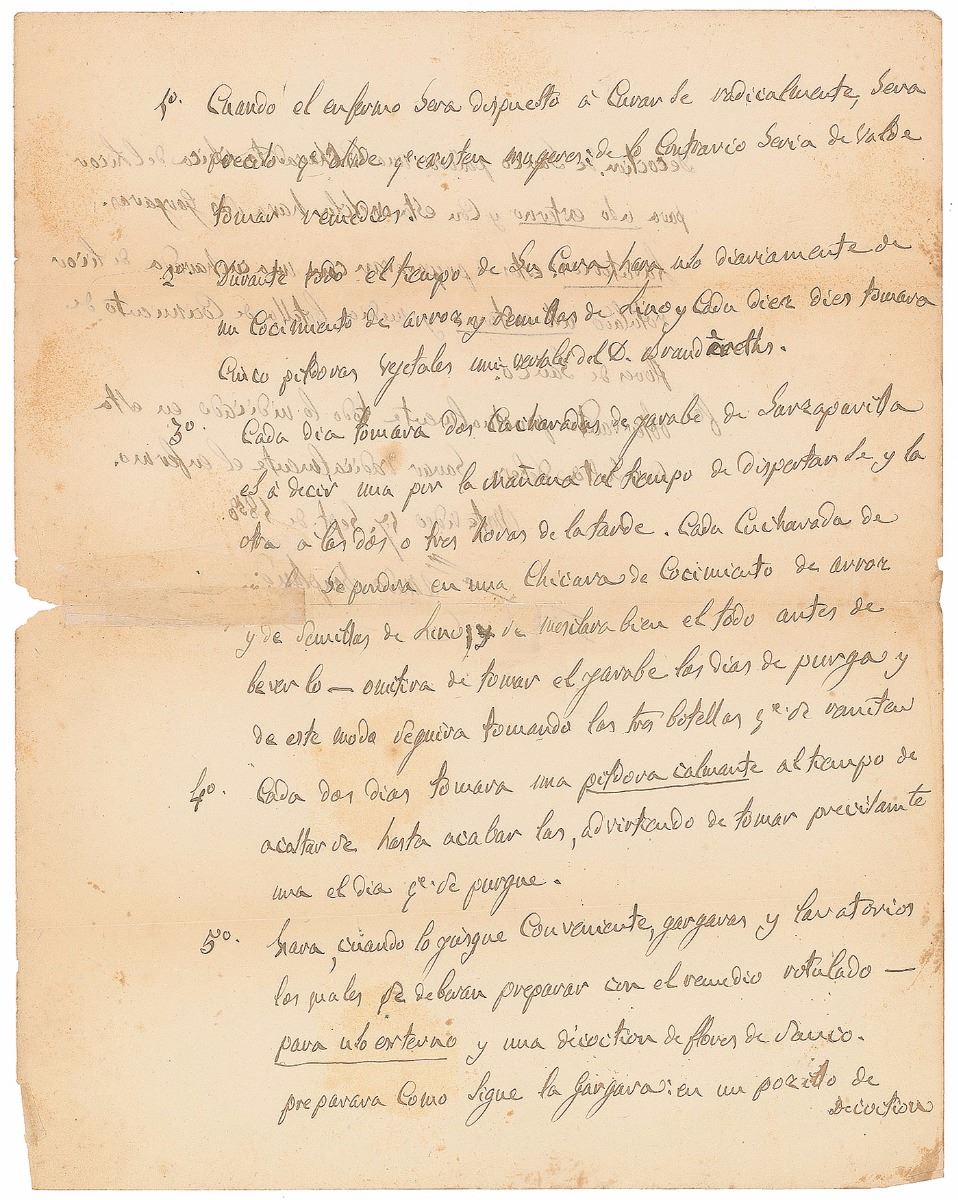 1º. Cuando el enfermo Sera dispuesto á Curar se radicalmente, Sera
preciso qe. olvide qe. existen mugeres; de lo Contrario Seria de Valde
tomar remedios.
2º Durante todo el tiempo de Su Cura hara uso diariamente de
un Cocimiento de arroz y Semillas de Lino y Cada diez dies tomara
Cinco pildoras Vejetales universales del D. Brandereths.
3º. Cada dia tomara dos Cucharadas de yarabe de Sarzaparilla
es á decir una por la mañana al tiempo de dispertar se y la
otra á las dós o tres horas de la tarde. Cada Cucharada de
Se pondra en una Chicara de Cocimiento de arroz
y de Semillas de Lino, y Se mesclara bien el todo antes de
bever lo — omitira de tomar el yarabe los dias de purga y
de este moda Seguira tomando las tres botellas qe. Se remiten
4º. Cada dos dias tomara una pildora calmante al tiempo de
acostar se hasta acabar las, advirtiendo de tomar precisamte
una el dia qe. Se purgue.
5º. hara, cuando lo jusgue Conveniente, gargaras y lavatorios
los quales Se deberan preparar con el remedio rotulado —
para uso esterno y una décoction de flores de Sauco.
preparara Como Sigue la Gargara: en un pozillo de
Decoction